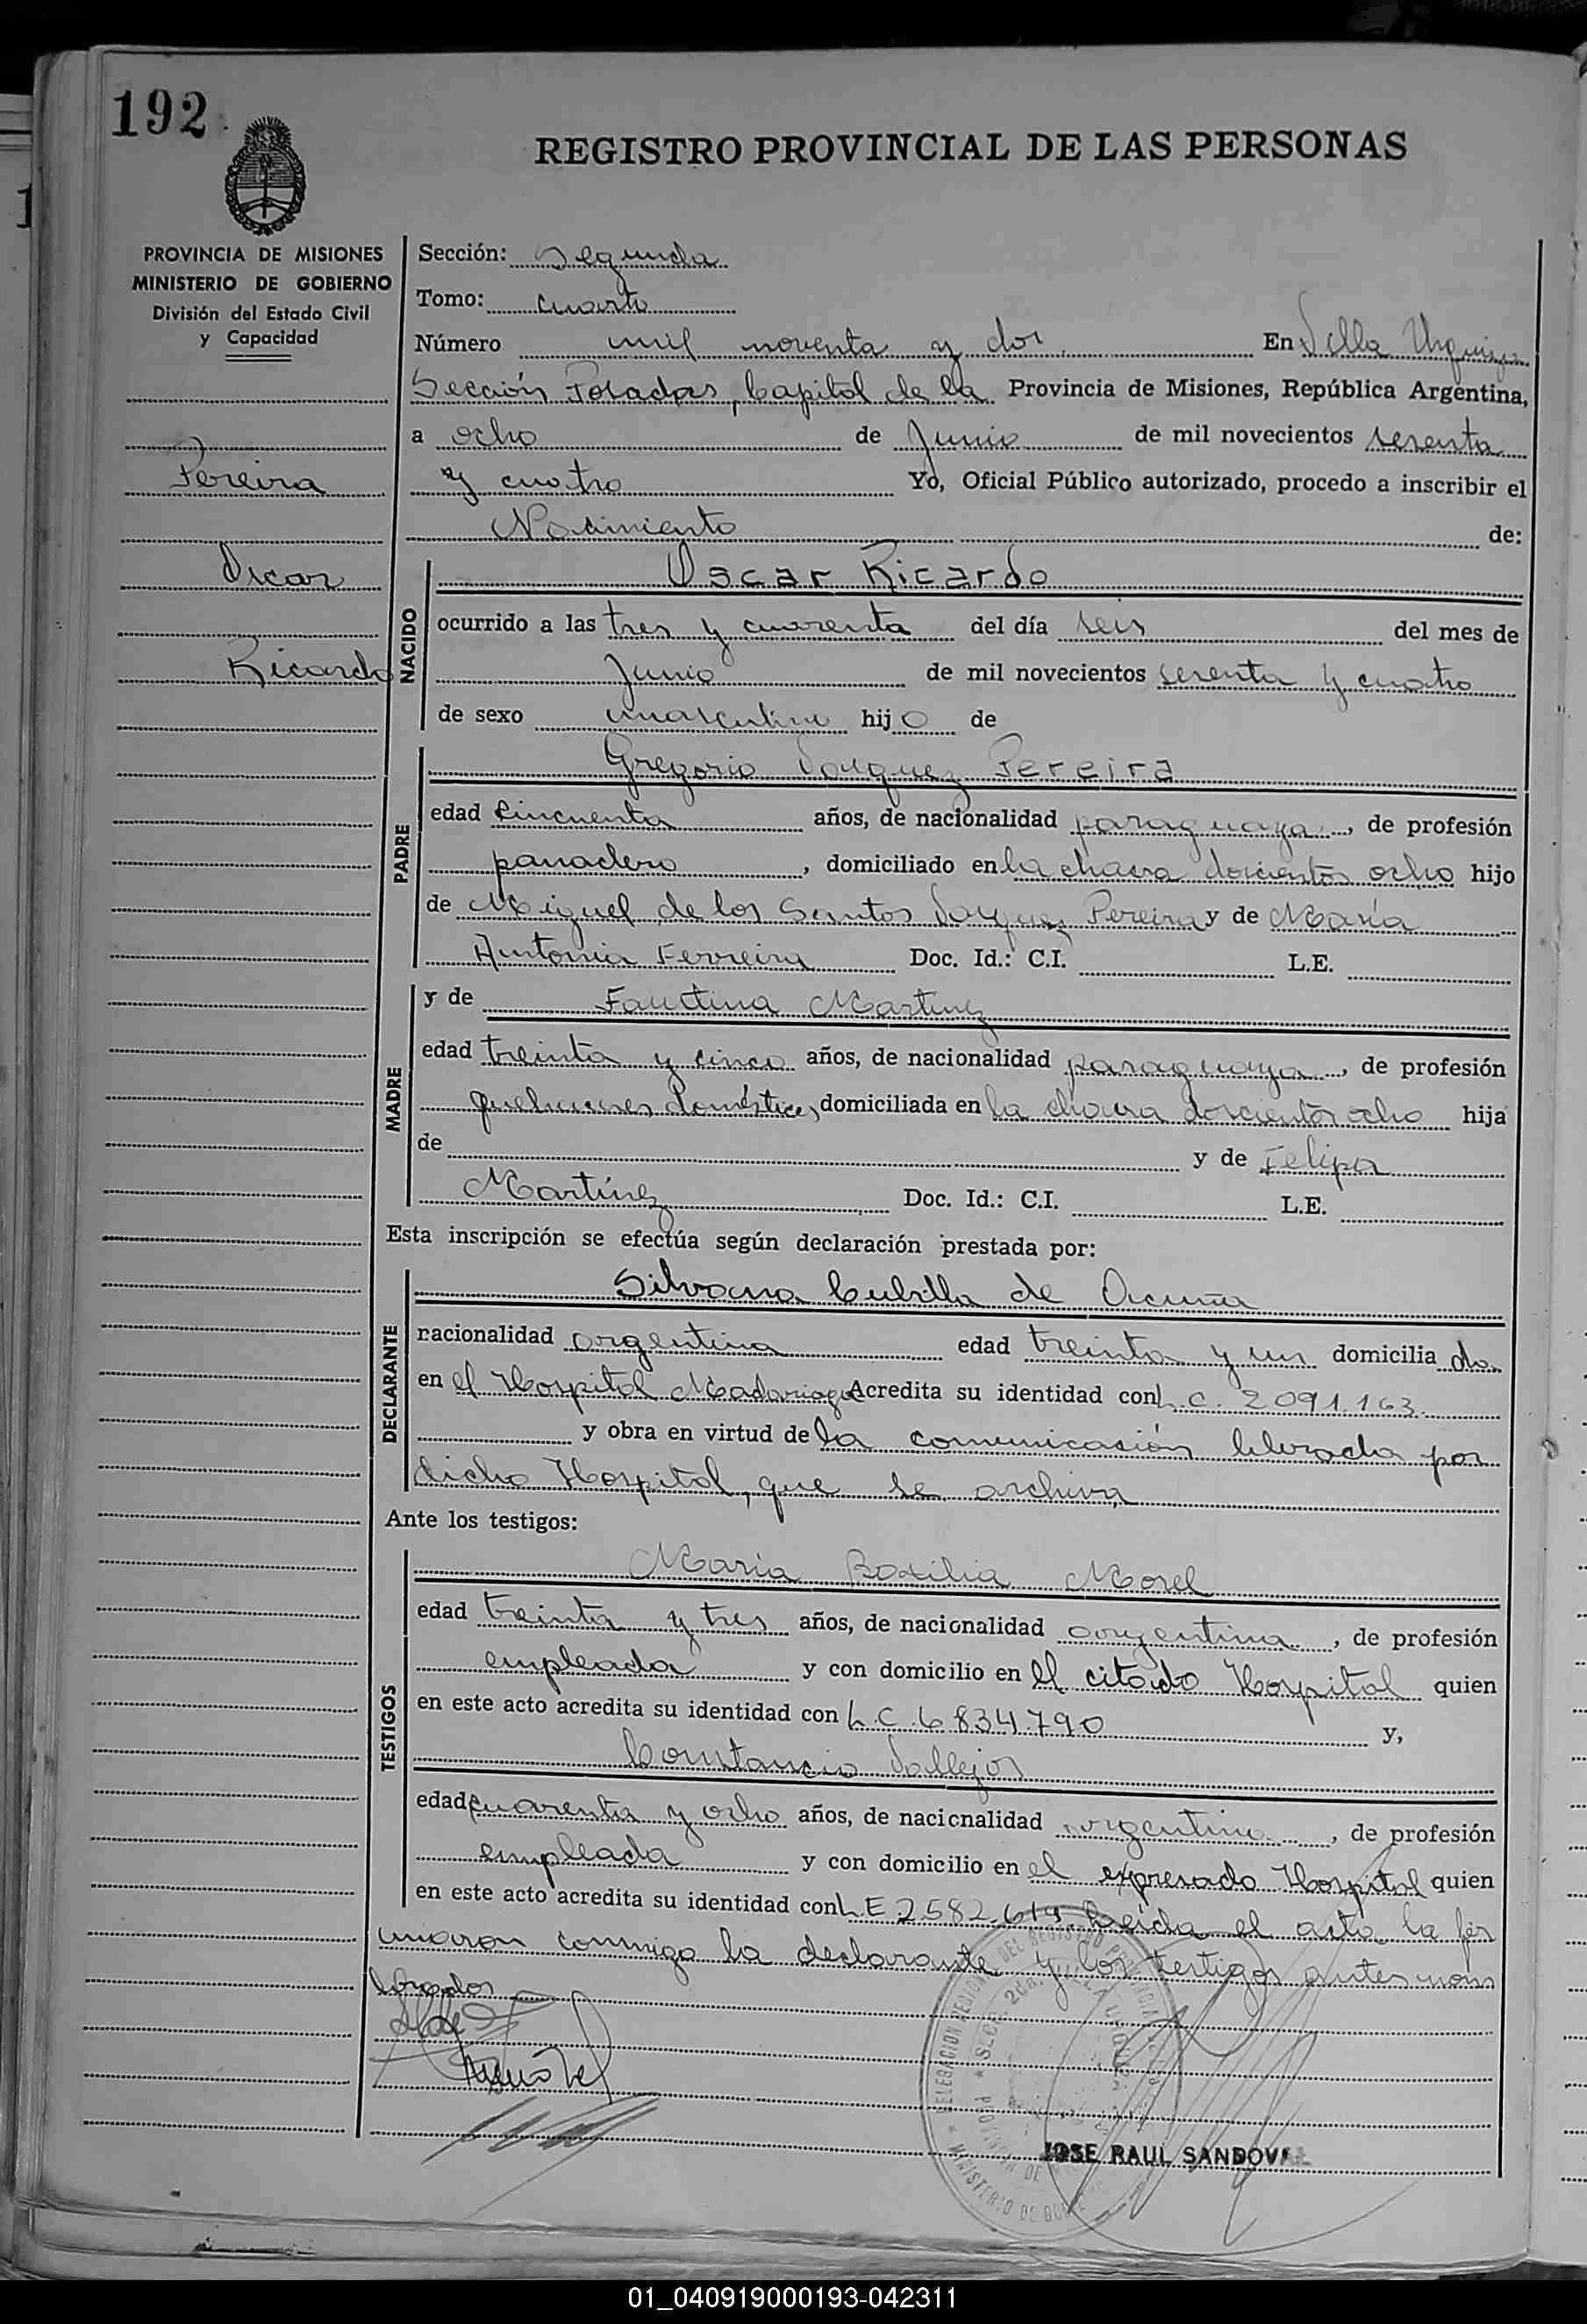 192
REGISTRO PROVINCIAL DE LAS PERSONAS
PROVINCIA DE MISIONES
MINISTERIO DE GOBIERNO
División del Estado Civil
y Capacidad
Pereira
Oscar
Ricardo
Sección: Segunda
Tomo: cuarto
Número mil noventa y dos En Villa Urquiza
Sección Posadas, Capital de la Provincia de Misiones, República Argentina,
a ocho de Junio de mil novecientos sesenta
y cuatro Yo, Oficial Público autorizado, procedo a inscribir el
Nacimiento de:
NACIDO
Oscar Ricardo
ocurrido a las tres y cuarenta del día seis del mes de
Junio de mil novecientos sesenta y cuatro
de sexo masculino hijo de
PADRE
Gregorio Vazquez Pereira
edad cincuenta años, de nacionalidad paraguaya, de profesión
panadero, domiciliado en la chacra doscientos ocho hijo
de Miguel de los Santos Vazquez Pereira y de María
Antonia Ferreira Doc. Id.: C.I. L.E.
MADRE
y de Faustina Martinez
edad treinta y cinco años, de nacionalidad paraguaya, de profesión
quehaceres domésticos, domiciliada en la chacra doscientos ocho hija
de y de Felipa
Martínez Doc. Id.: C.I. L.E.
Esta inscripción se efectúa según declaración prestada por:
DECLARANTE
Silvana Cubilla de Acuña
nacionalidad argentina edad treinta y un domiciliada
en el Hospital Madariaga Acredita su identidad con L.C. 2091.163
y obra en virtud de la comunicación librada por
dicho Hospital, que se archiva
Ante los testigos:
TESTIGOS
María Basilia Morel
edad treinta y tres años, de nacionalidad argentina, de profesión
empleada y con domicilio en el citado Hospital quien
en este acto acredita su identidad con L.C. 6.834.790 y,
Constancio Vallejos
edad cuarenta y ocho años, de nacionalidad argentina, de profesión
empleada y con domicilio en el expresado Hospital quien
en este acto acredita su identidad con L.E 2.582.619. Leída el acta la fir
maron conmigo la declarante y los testigos antes nom
brados
JOSE RAUL SANDOVAL
01_040919000193-042311